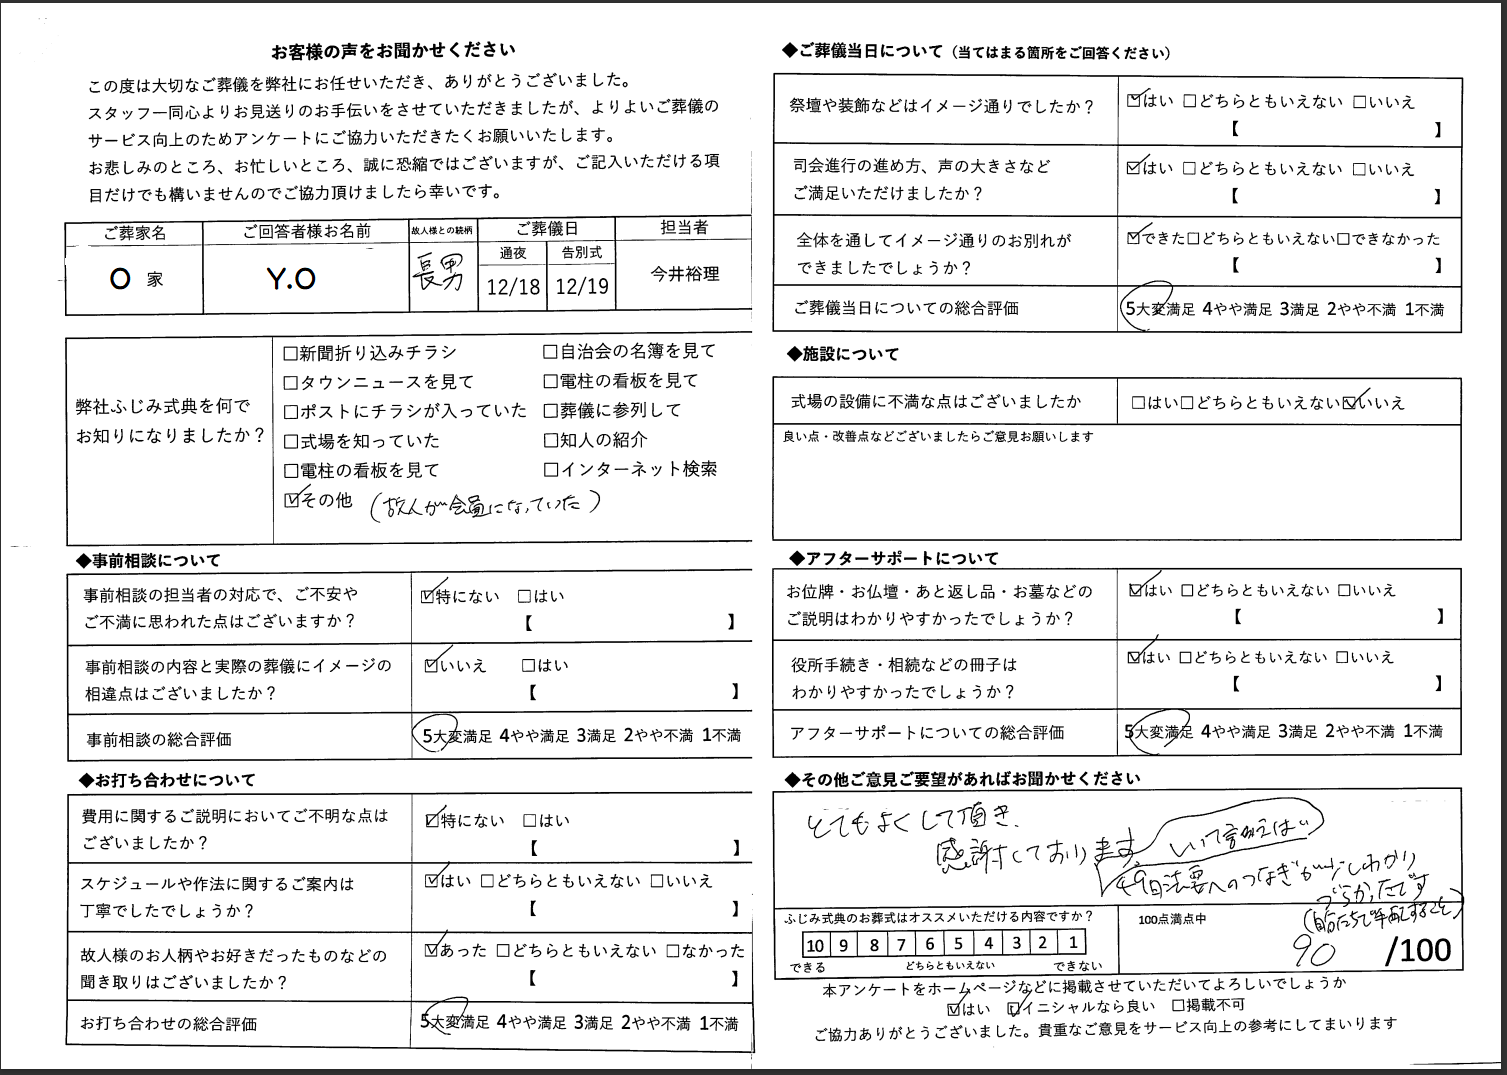 お客様の声をお聞かせください
この度は大切なご葬儀を弊社にお任せいただき、ありがとうございました。
スタッフ一同心よりお見送りのお手伝いをさせていただきましたが、よりよいご葬儀の
サービス向上のためアンケートにご協力いただきたくお願いいたします。
お悲しみのところ、お忙しいところ、誠に恐縮ではございますが、ご記入いただける項
目だけでも構いませんのでご協力頂けましたら幸いです。
ご葬家名 ご回答者様お名前 故人様との続柄 ご葬儀日 担当者
通夜 告別式
O 家 Y.O 長男 12/18 12/19 今井裕理
弊社ふじみ式典を何で
お知りになりましたか？
□新聞折り込みチラシ □自治会の名簿を見て
□タウンニュースを見て □電柱の看板を見て
□ポストにチラシが入っていた □葬儀に参列して
□式場を知っていた □知人の紹介
□電柱の看板を見て □インターネット検索
☑その他 (故人が会員になっていた)
◆事前相談について
事前相談の担当者の対応で、ご不安や
ご不満に思われた点はございますか？
☑特にない □はい
【 】
事前相談の内容と実際の葬儀にイメージの
相違点はございましたか？
☑いいえ □はい
【 】
事前相談の総合評価
5大変満足 4やや満足 3満足 2やや不満 1不満
◆お打ち合わせについて
費用に関するご説明においてご不明な点は
ございましたか？
☑特にない □はい
【 】
スケジュールや作法に関するご案内は
丁寧でしたでしょうか？
☑はい □どちらともいえない □いいえ
【 】
故人様のお人柄やお好きだったものなどの
聞き取りはございましたか？
☑あった □どちらともいえない □なかった
【 】
お打ち合わせの総合評価
5大変満足 4やや満足 3満足 2やや不満 1不満
◆ご葬儀当日について（当てはまる箇所をご回答ください）
祭壇や装飾などはイメージ通りでしたか？
☑はい □どちらともいえない □いいえ
【 】
司会進行の進め方、声の大きさなど
ご満足いただけましたか？
☑はい □どちらともいえない □いいえ
【 】
全体を通してイメージ通りのお別れが
できましたでしょうか？
☑できた□どちらともいえない□できなかった
【 】
ご葬儀当日についての総合評価
5大変満足 4やや満足 3満足 2やや不満 1不満
◆施設について
式場の設備に不満な点はございましたか
□はい□どちらともいえない☑いいえ
良い点・改善点などございましたらご意見お願いします
◆アフターサポートについて
お位牌・お仏壇・あと返し品・お墓などの
ご説明はわかりやすかったでしょうか？
☑はい □どちらともいえない □いいえ
【 】
役所手続き・相続などの冊子は
わかりやすかったでしょうか？
☑はい □どちらともいえない □いいえ
【 】
アフターサポートについての総合評価
5大変満足 4やや満足 3満足 2やや不満 1不満
◆その他ご意見ご要望があればお聞かせください
とてもよくして頂き、
感謝しております。
しいて言めえばい
49日法要へのつなぎが少しわかり
づらかったです
(自分たちで手配すること)
ふじみ式典のお葬式はオススメいただける内容ですか？
10 9 8 7 6 5 4 3 2 1
できる どちらともいえない できない
100点満点中
90 /100
本アンケートをホームページなどに掲載させていただいてよろしいでしょうか
☑はい ☑イニシャルなら良い □掲載不可
ご協力ありがとうございました。貴重なご意見をサービス向上の参考にしてまいります